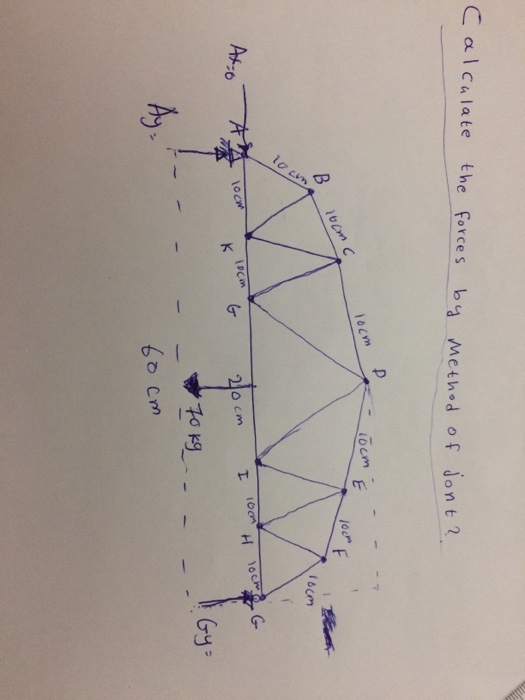 Calculate the forces by Method of Joint?
D
10cm
10cm
C
E
10cm
10cm
B
F
10cm
10cm
Ax=0
A
10cm
K
10cm
G
20cm
I
10cm
H
10cm
G
70 kg
Ay=
Gy=
60 cm